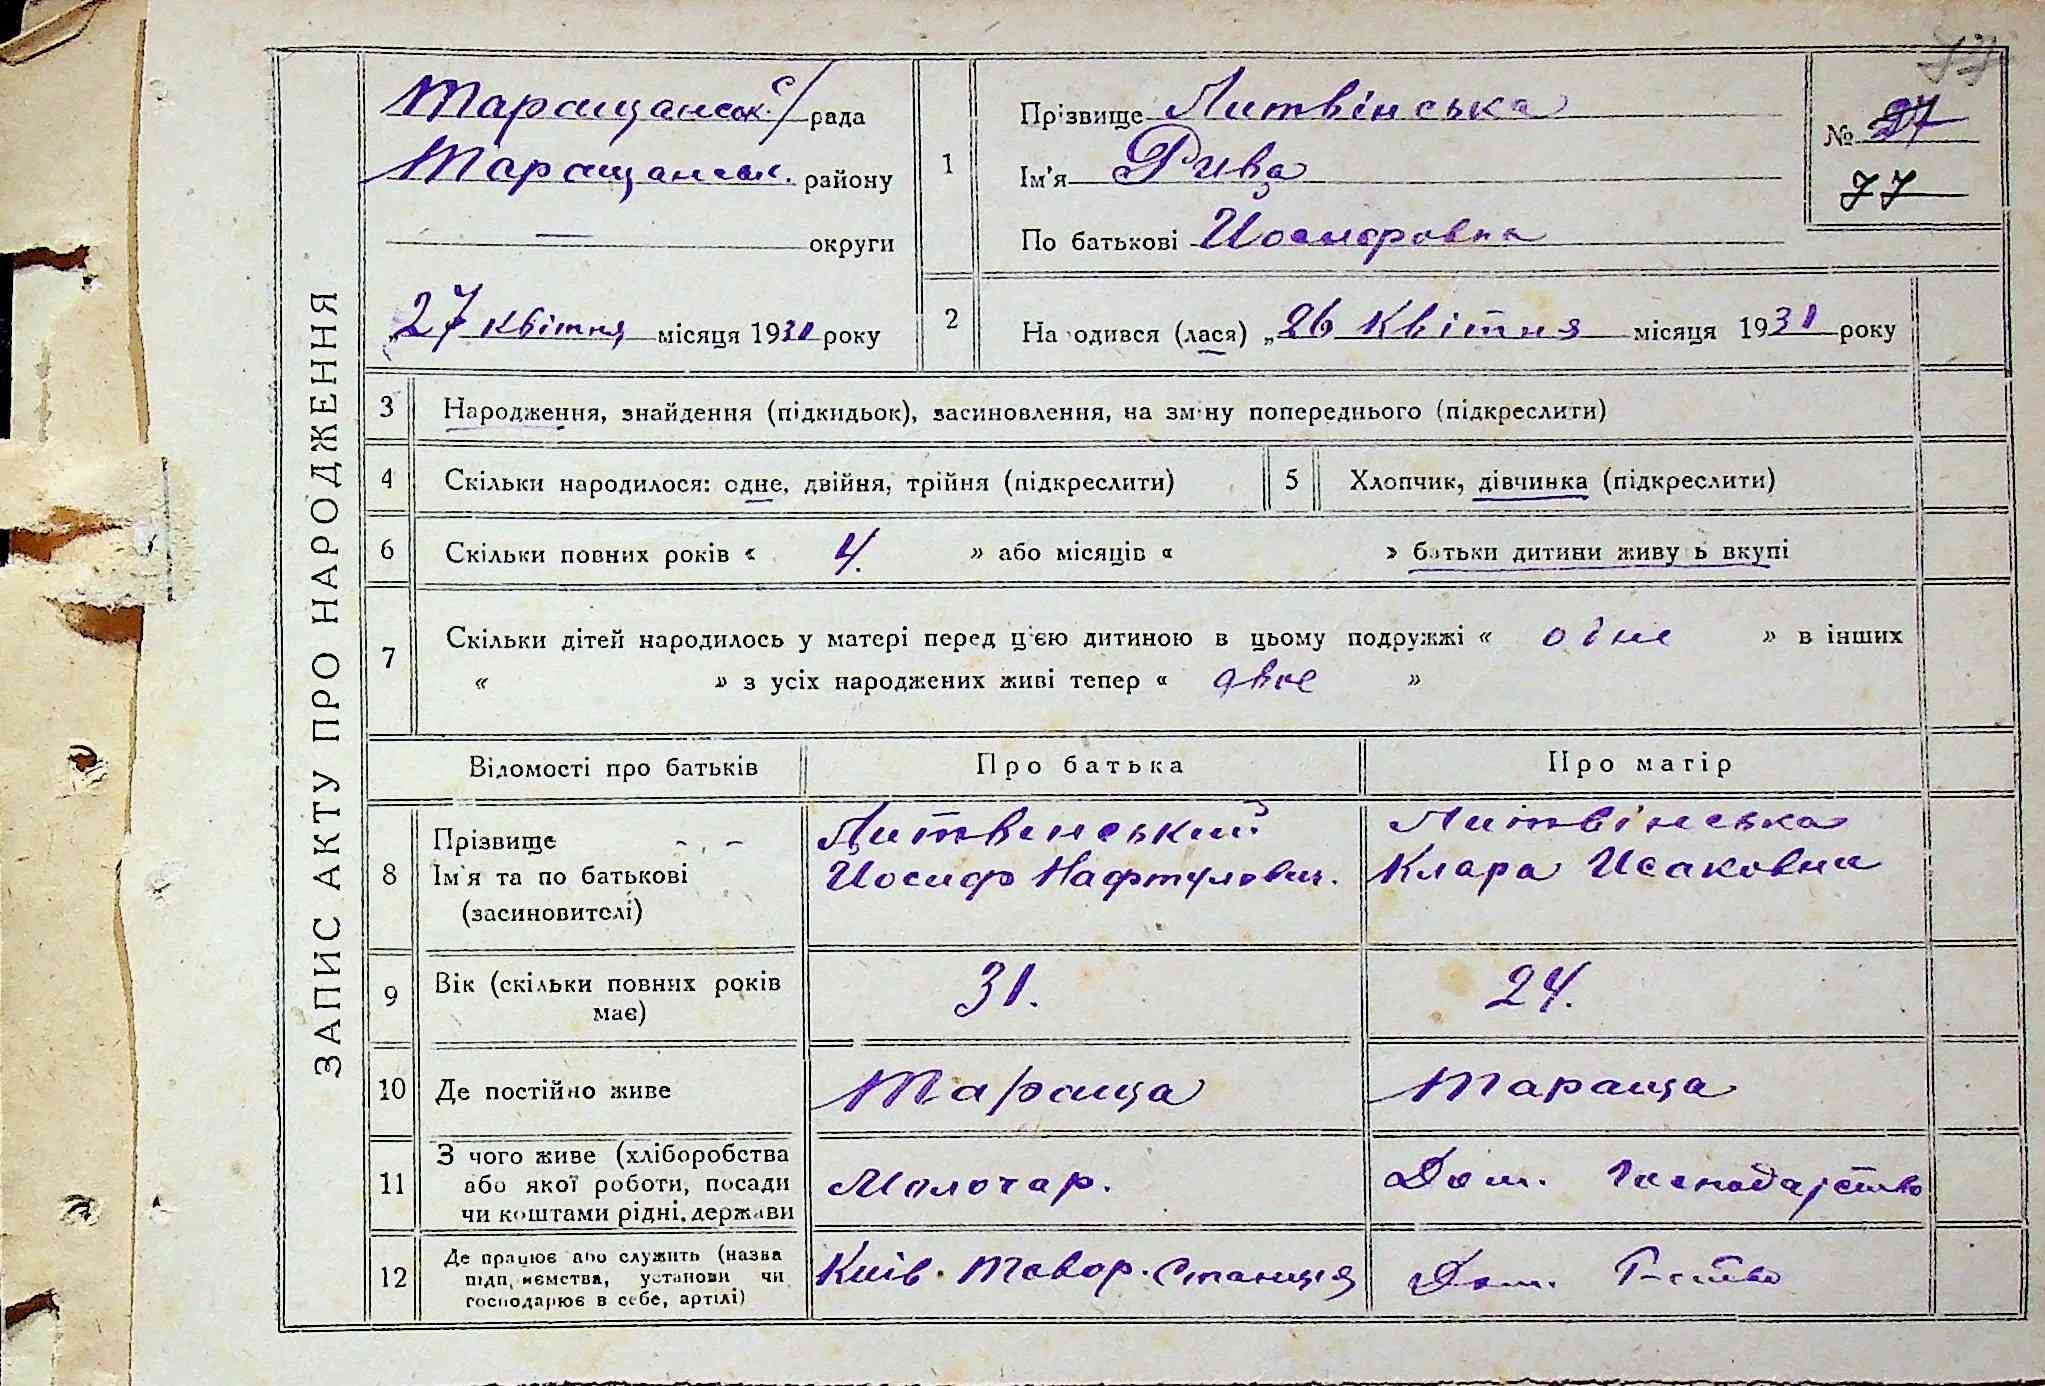 ЗАПИС АКТУ ПРО НАРОДЖЕННЯ
77
Таращанськ. с/рада
Таращанськ. району
— округи
„27 квітня місяця 1931 року
1
Прізвище Литвінська
Ім'я Рива
По батькові Йосифовна
№ 27
77
2
Народився (лася) „26 Квітня місяця 1931 року
3 Народження, знайдення (підкидьок), засиновлення, на зміну попереднього (підкреслити)
4 Скільки народилося: одне, двійня, трійня (підкреслити)
5 Хлопчик, дівчинка (підкреслити)
6 Скільки повних років « 4. » або місяців « » батьки дитини живуть вкупі
7 Скільки дітей народилось у матері перед цією дитиною в цьому подружжі « одне » в інших
« » з усіх народжених живі тепер « двое »
Відомості про батьків Про батька Про матір
8 Прізвище
Ім'я та по батькові
(засиновителі)
Литвинський
Йосиф Нафтулович.
Литвінська
Клара Исаковна
9 Вік (скільки повних років
має)
31.
24.
10 Де постійно живе
Тараща
Тараща
11 З чого живе (хліборобства
або якої роботи, посади
чи коштами рідні, держави
Молочар.
Дом. Господарство
12 Де працює або служить (назва
підприємства, установи чи
господарює в себе, артілі)
Київ. Товар. Станция
Дом. Г-ство